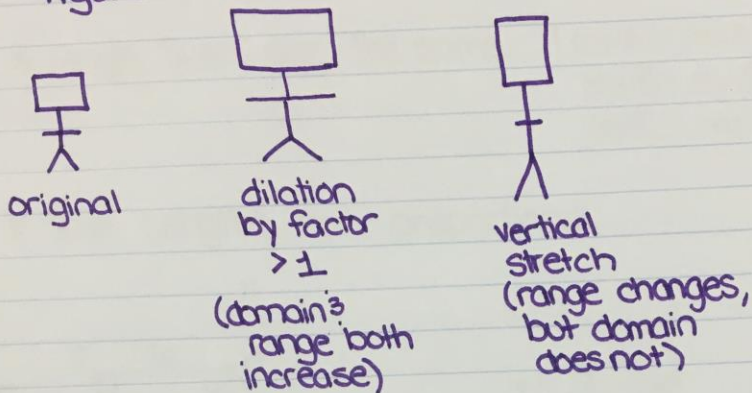 original
dilation
by factor
> 1
(domain &
range both
increase)
vertical
stretch
(range changes,
but domain
does not)